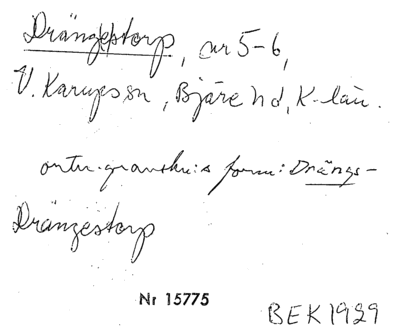 Drängestorp, nr 5-6,
V. Karups sn, Bjäre hd, K-län.
ortn.granskn:s form: Drängs-
Drängestorp
Nr 15775
BEK 1929